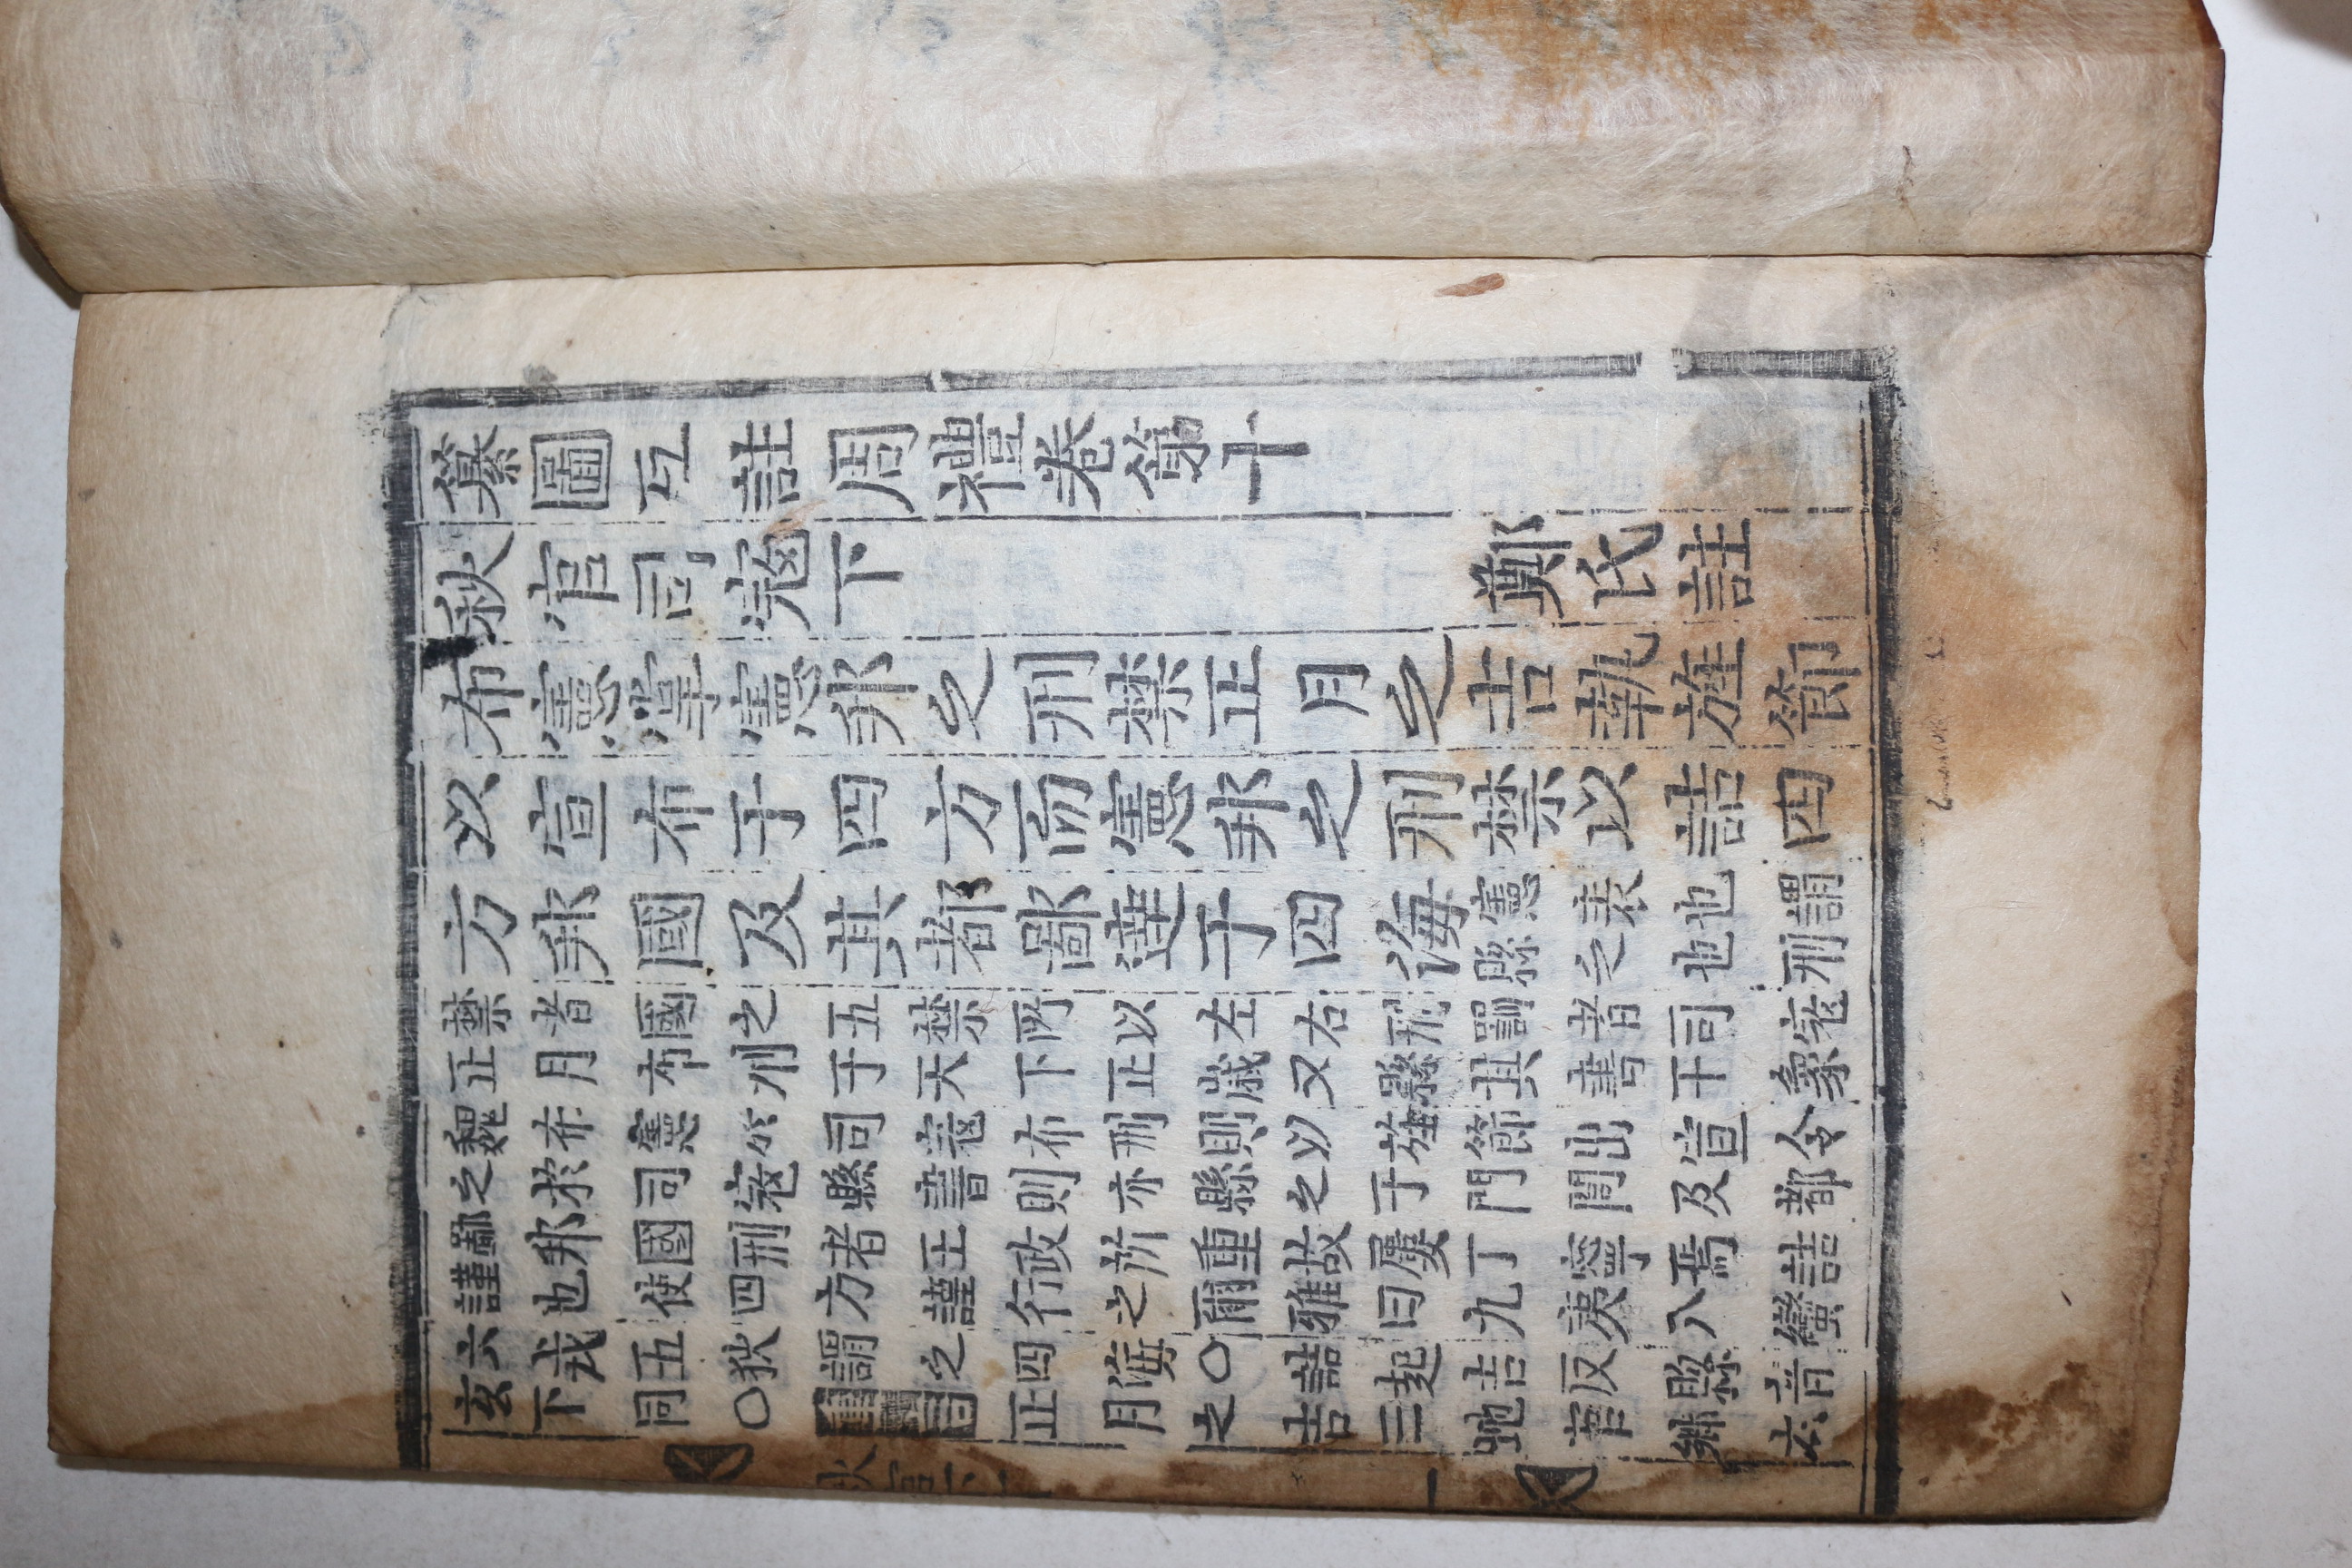 纂圖互註周禮卷第十
秋官司寇下 鄭氏註
布憲掌憲邦之刑禁正月之吉執旌節
以宣布于四方而憲邦之刑禁以詰四
方邦國及其都鄙達于四海
憲表也謂
縣之也刑
禁者國之五禁所以左右刑罰者司寇
正月布刑于天下正歲又縣其書于象
魏布憲於司寇布刑則以旌節出宣令
之於司寇縣書則亦縣之于門閭及都
鄙邦國刑者王政所重故屢丁寧焉詰
謹也使四方謹行之爾雅曰九夷八蠻
六戎五狄謂之四海〇詰起吉反縣音
玄下同〇正月之吉三地官鄉
秋官下
一